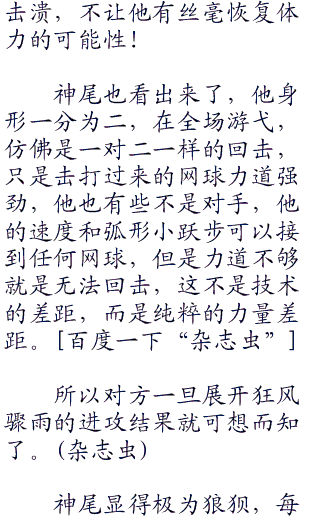 击溃，不让他有丝毫恢复体
力的可能性！
神尾也看出来了，他身
形一分为二，在全场游弋，
仿佛是一对二一样的回击，
只是击打过来的网球力道强
劲，他也有些不是对手，他
的速度和弧形小跃步可以接
到任何网球，但是力道不够
就是无法回击，这不是技术
的差距，而是纯粹的力量差
距。[百度一下“杂志虫”]
所以对方一旦展开狂风
骤雨的进攻结果就可想而知
了。(杂志虫)
神尾显得极为狼狈，每